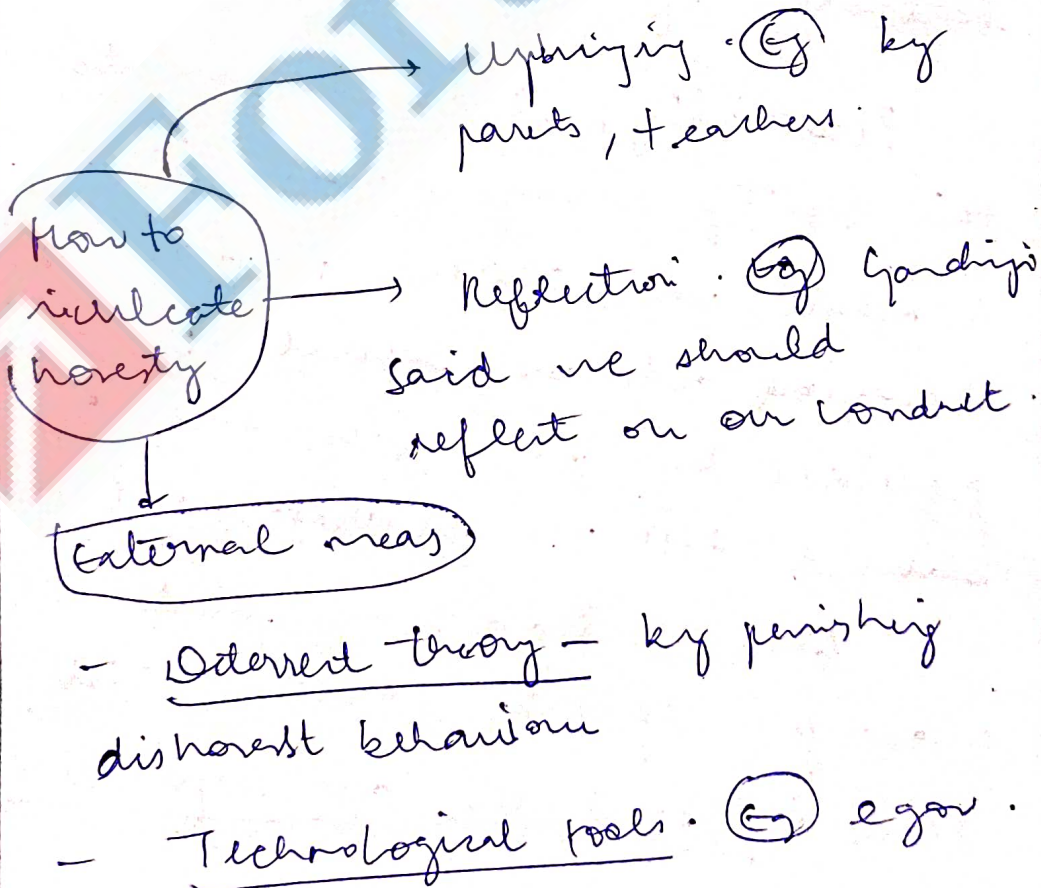 Upbringing. Eg by
parents, teachers.
How to
inculcate
honesty
Reflection. Eg Gandhiji
said we should
reflect on our conduct.
External meas
- Deterrent theory - by punishing
dishonest behaviour
- Technological tools. Eg egov.